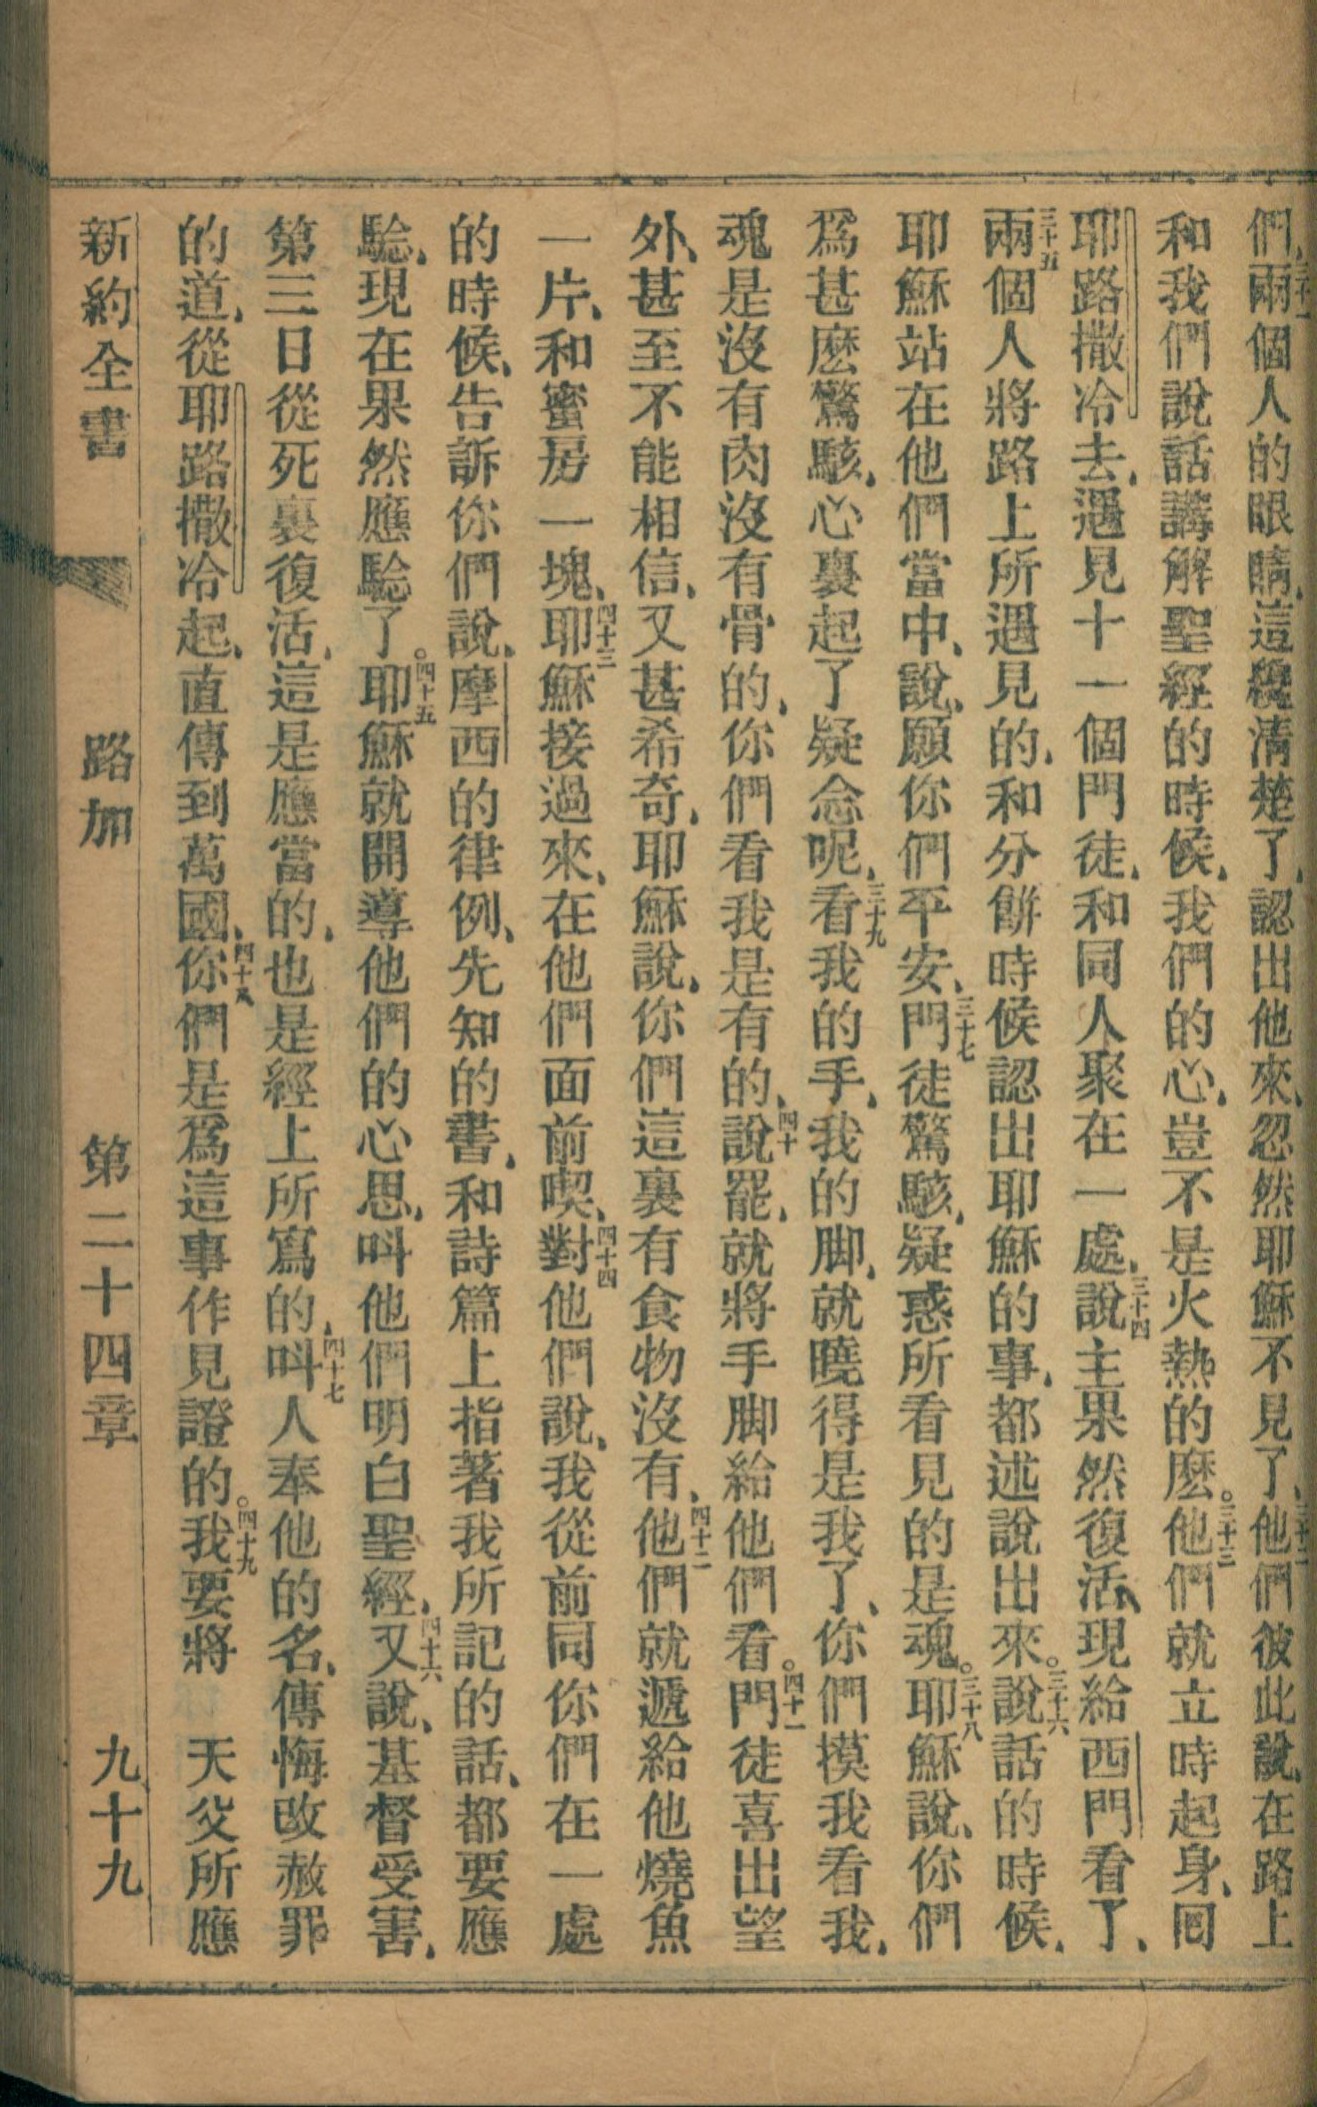 們、三十一兩個人的眼睛、這纔清楚了、認出他來、忽然耶穌不見了、三十二他們彼此說、在路上
和我們說話講解聖經的時候、我們的心、豈不是火熱的麽。三十三他們就立時起身、回
耶路撒冷去、遇見十一個門徒、和同人聚在一處、三十四說主果然復活、現給西門看了、
三十五兩個人將路上所遇見的、和分餅時候認出耶穌的事、都述說出來。三十六說話的時候、
耶穌站在他們當中、說、願你們平安、三十七門徒驚駭、疑惑所看見的是魂。三十八耶穌說、你們
爲甚麽驚駭、心裏起了疑念呢、三十九看我的手、我的脚、就曉得是我了、你們摸我看我、
魂是沒有肉沒有骨的、你們看我是有的、四十說罷、就將手脚給他們看。四十一門徒喜出望
外、甚至不能相信、又甚希奇、耶穌說、你們這裏有食物沒有、四十二他們就遞給他燒魚
一片、和蜜房一塊、四十三耶穌接過來、在他們面前喫、四十四對他們說、我從前同你們在一處
的時候、告訴你們說、摩西的律例、先知的書、和詩篇上指著我所記的話、都要應
驗、現在果然應驗了。四十五耶穌就開導他們的心思、叫他們明白聖經、四十六又說、基督受害、
第三日從死裏復活、這是應當的、也是經上所寫的、四十七叫人奉他的名、傳悔改赦罪
的道、從耶路撒冷起、直傳到萬國、四十八你們是爲這事作見證的。四十九我要將 天父所應
新約全書 路加 第二十四章 九十九